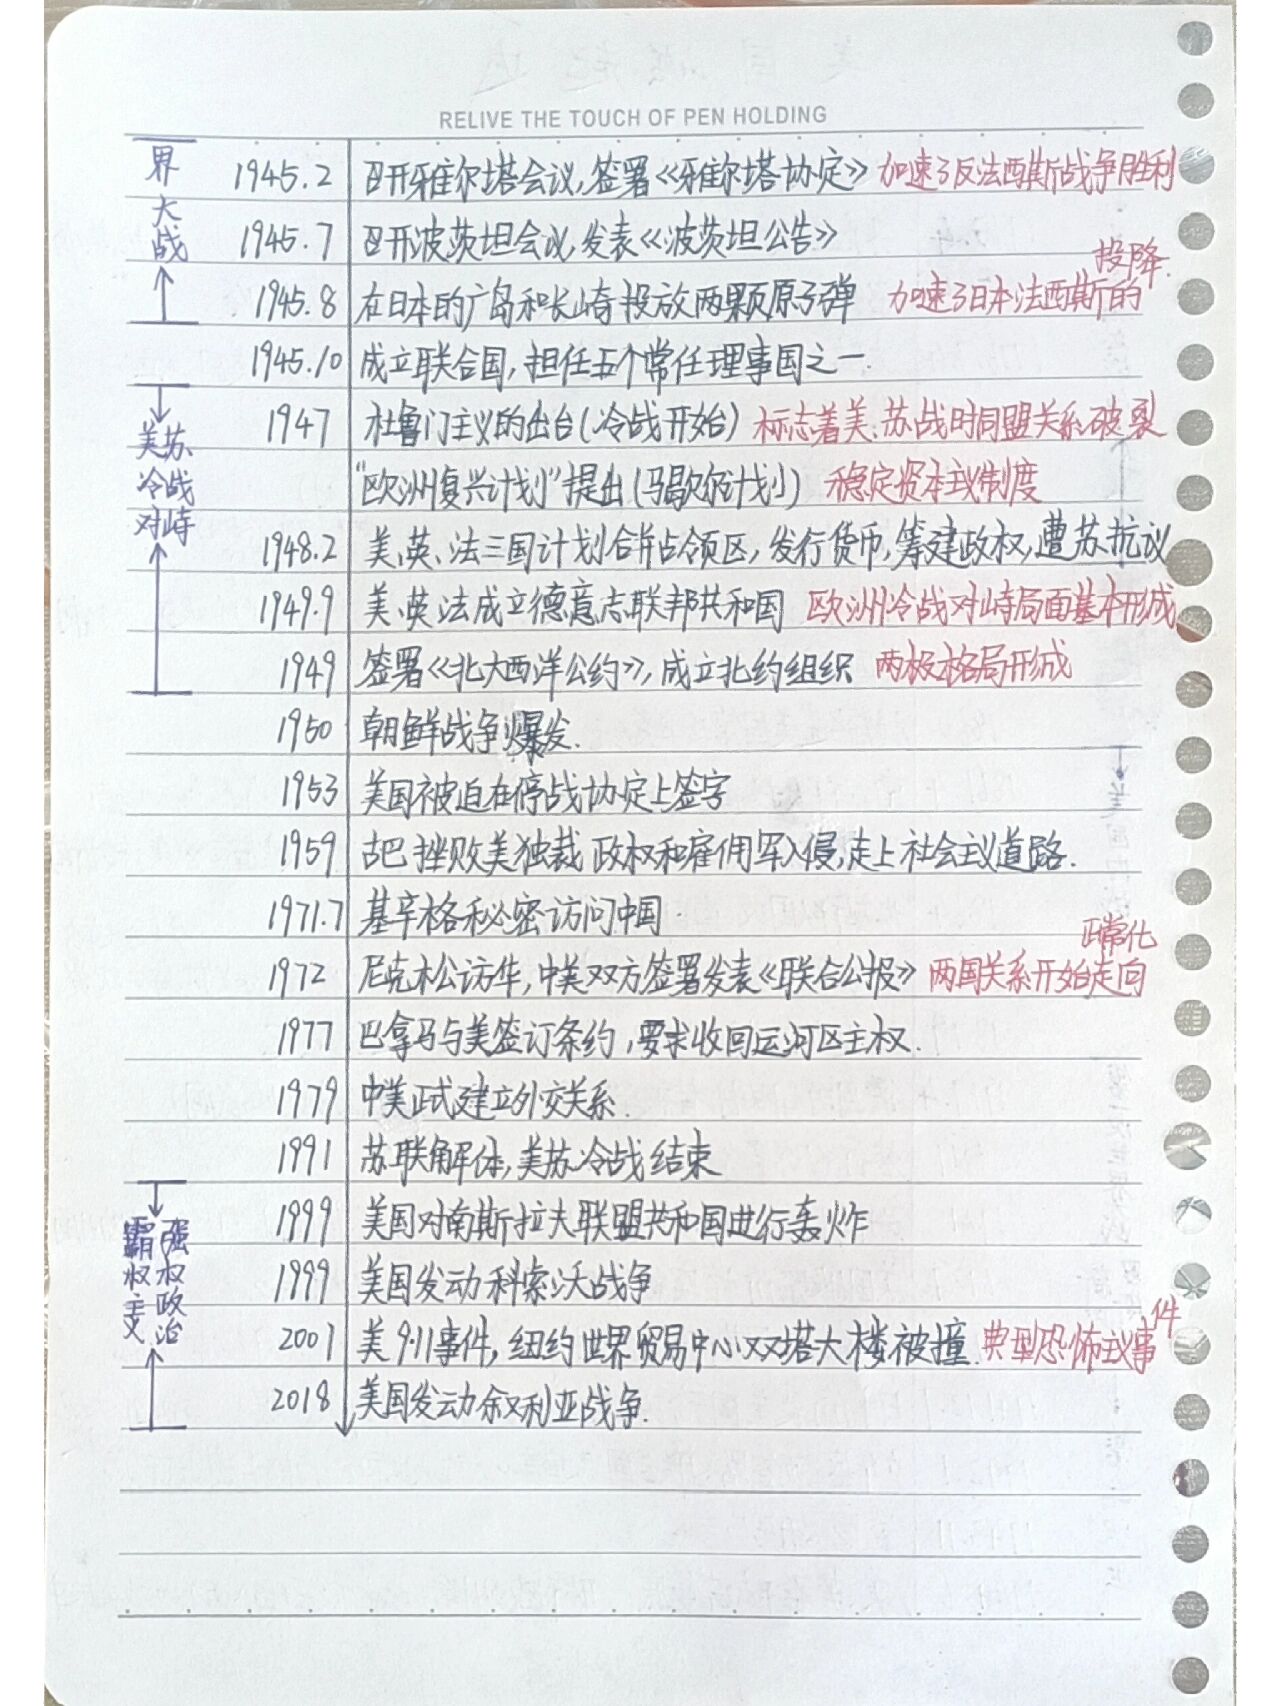 RELIVE THE TOUCH OF PEN HOLDING
界大战
1945.2 召开雅尔塔会议,签署《雅尔塔协定》 加速了反法西斯战争胜利
1945.7 召开波茨坦会议,发表《波茨坦公告》
1945.8 在日本的广岛和长崎投放两颗原子弹 加速了日本法西斯的投降.
1945.10 成立联合国,担任五个常任理事国之一.
美苏冷战对峙
1947 杜鲁门主义的出台(冷战开始) 标志着美、苏战时同盟关系破裂
"欧洲复兴计划"提出(马歇尔计划) 稳定资本主义制度
1948.2 美、英、法三国计划合并占领区,发行货币,筹建政权,遭苏抗议
1949.9 美、英、法成立德意志联邦共和国 欧洲冷战对峙局面基本形成
1949 签署《北大西洋公约》,成立北约组织 两极格局形成
1950 朝鲜战争爆发.
1953 美国被迫在停战协定上签字
1959 古巴挫败美独裁政权和雇佣军入侵,走上社会主义道路.
1971.7 基辛格秘密访问中国.
1972 尼克松访华,中美双方签署发表《联合公报》 两国关系开始走向正常化
1977 巴拿马与美签订条约,要求收回运河区主权.
1979 中美正式建立外交关系.
1991 苏联解体,美苏冷战结束
霸权主义
强权政治
1999 美国对南斯拉夫联盟共和国进行轰炸
1999 美国发动科索沃战争
2001 美9·11事件,纽约世界贸易中心双塔大楼被撞. 典型恐怖主义事件
2018 美国发动叙利亚战争.